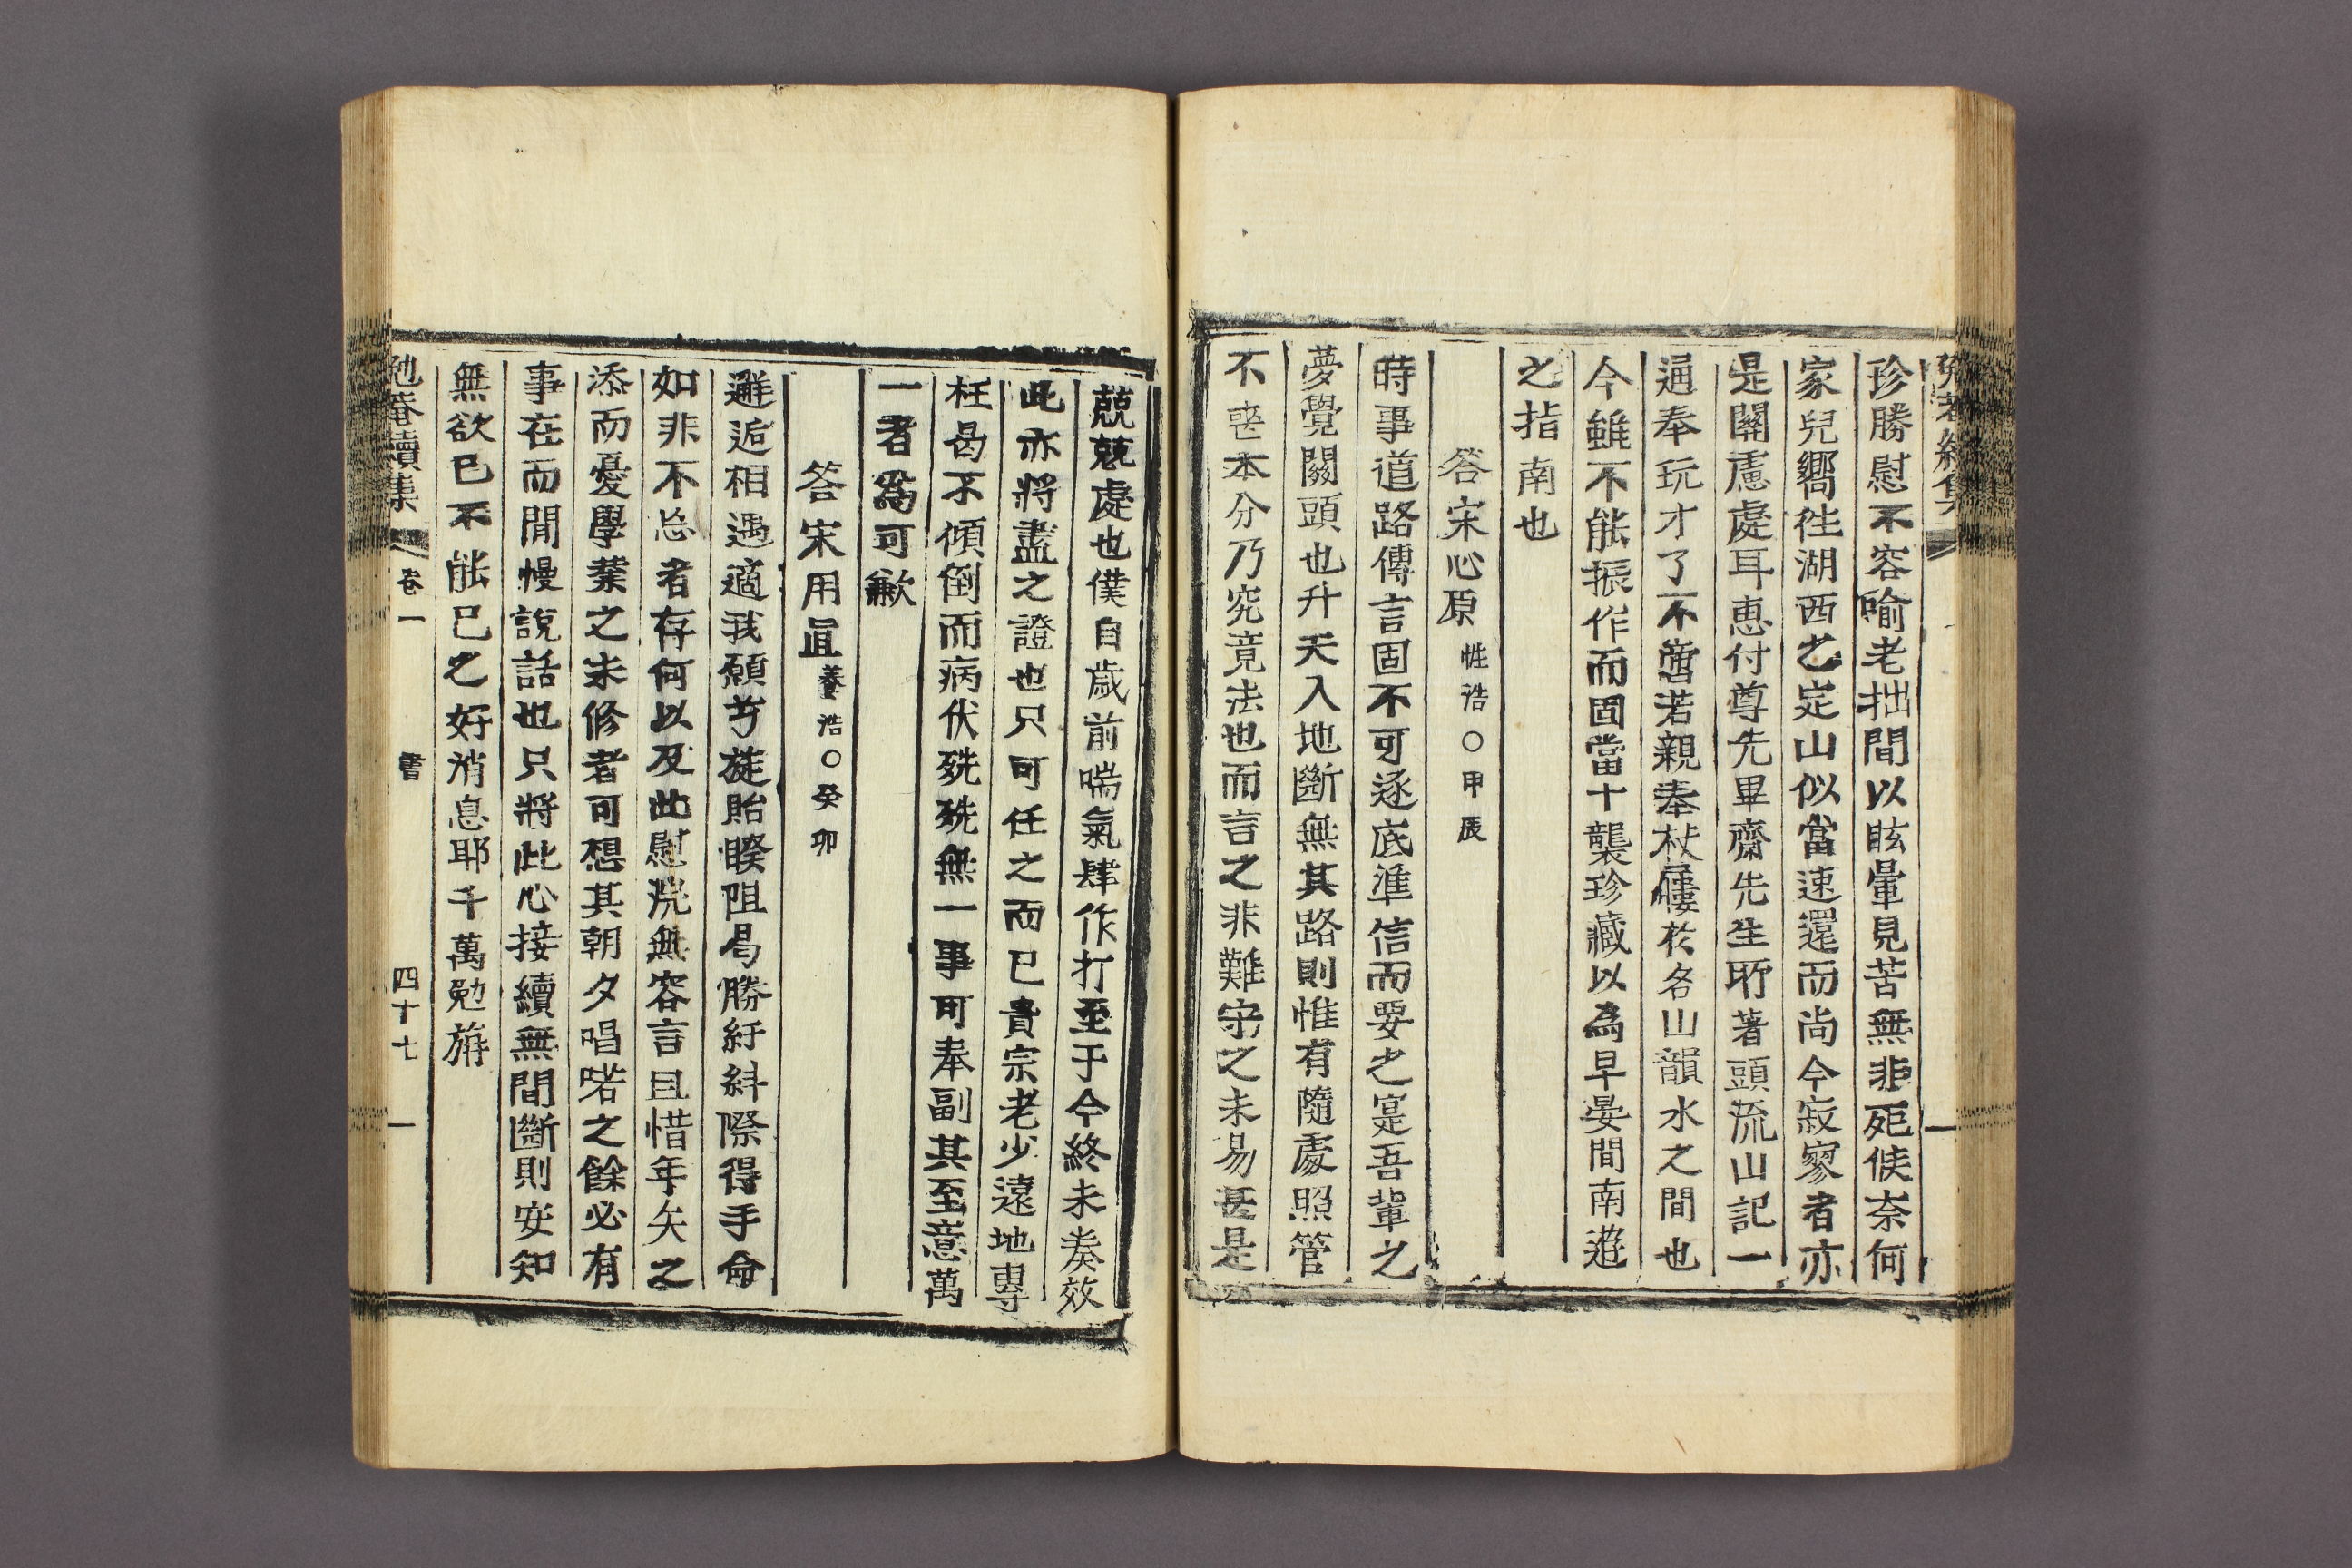 珍勝慰不容喩老拙間以眩暈見苦無非死候奈何
家兒嚮徃湖西之定山似當速還而尚今寂寥者亦
是關慮處耳惠付尊先畢齋先生所著頭流山記一
通奉玩才了不啻若親奉杖屨於名山韻水之間也
今雖不能振作而固當十襲珍藏以為早晏間南遊
之指南也
答宋心原 性浩○甲辰
時事道路傳言固不可逐底準信而要之寔吾輩之
夢覺關頭也升天入地斷無其路則惟有隨處照管
不喪本分乃究竟法也而言之非難守之未易甚是
兢兢處也僕自歲前喘氣肆作打至于今終未奏效
此亦將盡之證也只可任之而已貴宗老少遠地專
枉曷不傾倒而病伏㱡㱡無一事可奉副其至意萬
一者爲可歉
答宋用直 養浩○癸卯
邂逅相遇適我願兮旋貽睽阻曷勝紆紏際得手命
如非不忘者存何以及此慰浣無容言且惜年矢之
添而憂學業之未修者可想其朝夕唱喏之餘必有
事在而閒慢說話也只將此心接續無間斷則安知
無欲已不能已之好消息耶千萬勉旃
勉菴續集 卷一 書 四十七 一